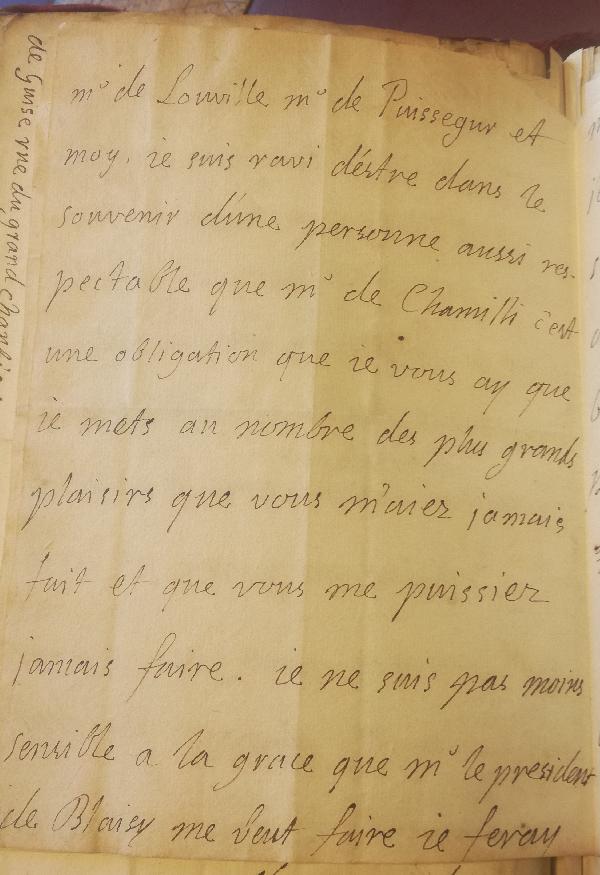 mr de Louville mr de Puissegur et
moy. ie suis ravi déstre dans le
souvenir dúne personne aussi res-
pectable que mr de Chamilli c'est
une obligation que ie vous ay que
ie mets au nombre des plus grands
plaisirs que vous m'aiez jamais
fait et que vous me puissiez
jamais faire. ie ne suis pas moins
sensible a la grace que mr le president
de Blaisy me veut faire ie feray
de Guise rue du grand